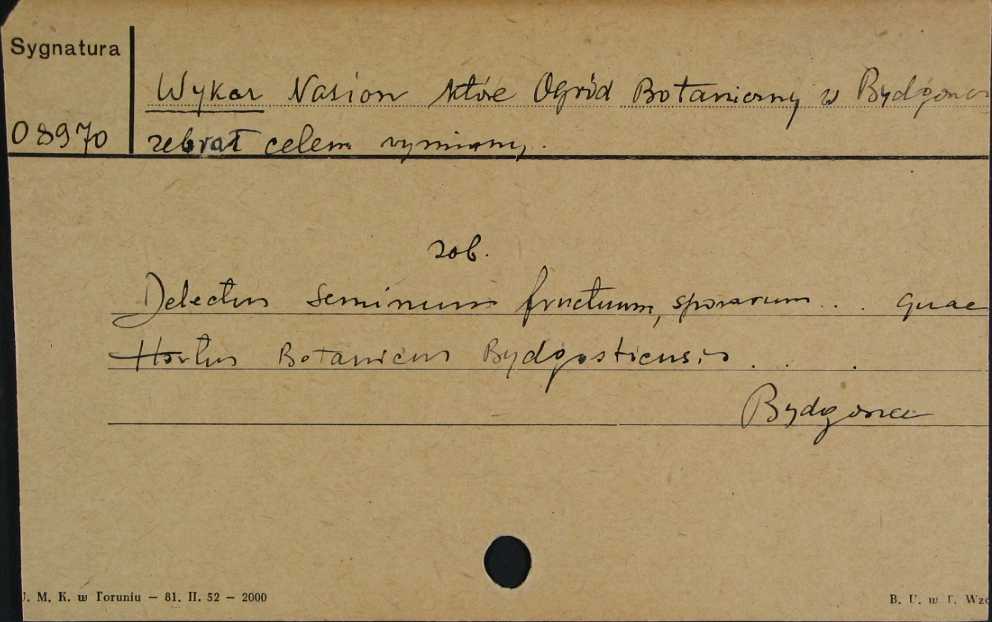 Sygnatura
Wykaz Nasion które Ogród Botaniczny w Bydgoszcz
08970
zebrał celem wymiany.
zob.
Delectus seminum fructuum, sporarum . . quae
Hortus Botanicus Bydgosticensis . . .
Bydgoszcz
. M. K. w Toruniu — 81. II. 52 — 2000
B. U. w T. Wzó